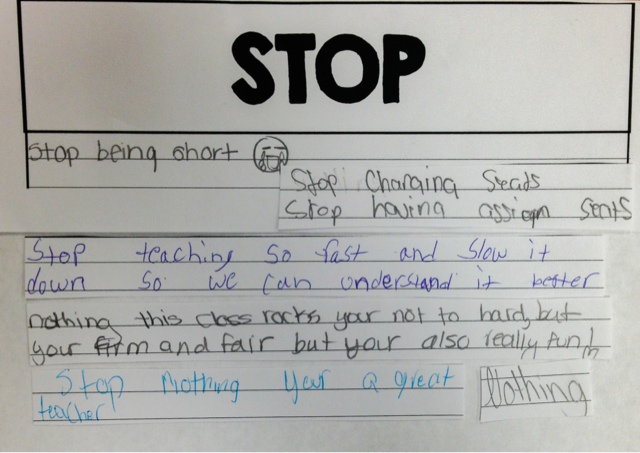 STOP
Stop being short
Stop Changing Seats
Stop having assign seats
Stop teaching so fast and slow it
down so we can understand it better
nothing this class rocks your not to hard, but
your firm and fair but your also really fun!
Stop Nothing Your a great
teacher
Nothing